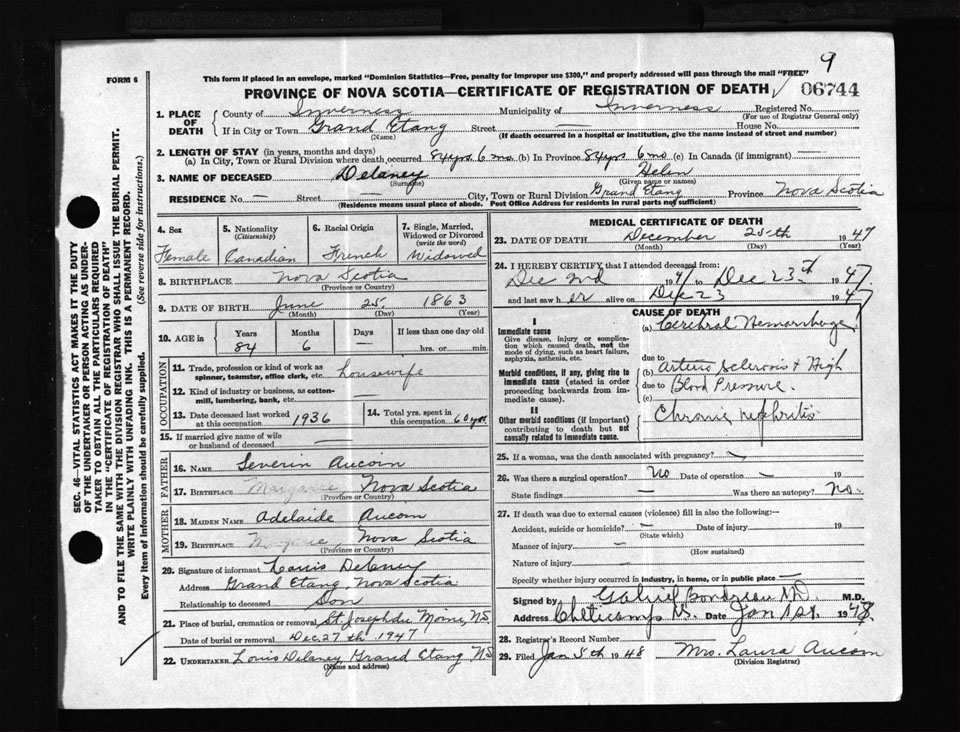 9
FORM 6
This form if placed in an envelope, marked "Dominion Statistics—Free, penalty for improper use $300," and properly addressed will pass through the mail "FREE"
PROVINCE OF NOVA SCOTIA—CERTIFICATE OF REGISTRATION OF DEATH ✓ 06744
1. PLACE OF DEATH
County of Inverness Municipality of Inverness Registered No.
(For use of Registrar General only)
If in City or Town Grand Etang Street — House No.
(Name) (If death occurred in a hospital or institution, give the name instead of street and number)
2. LENGTH OF STAY (in years, months and days)
(a) In City, Town or Rural Division where death occurred 84 yrs. 6 mo. (b) In Province 84 yrs 6 mo (c) In Canada (if immigrant) —
3. NAME OF DECEASED Delaney Helen
(Surname) (Given name or names)
RESIDENCE No. — Street — City, Town or Rural Division Grand Etang Province Nova Scotia
(Residence means usual place of abode. Post Office Address for residents in rural parts not sufficient)
SEC. 46—VITAL STATISTICS ACT MAKES IT THE DUTY
OF THE UNDERTAKER OR PERSON ACTING AS UNDER-
TAKER TO OBTAIN ALL THE PARTICULARS REQUIRED
IN THE "CERTIFICATE OF REGISTRATION OF DEATH"
AND TO FILE THE SAME WITH THE DIVISION REGISTRAR WHO SHALL ISSUE THE BURIAL PERMIT.
WRITE PLAINLY WITH UNFADING INK. THIS IS A PERMANENT RECORD.
Every item of information should be carefully supplied. (See reverse side for instructions.)
4. Sex
Female
5. Nationality
(Citizenship)
Canadian
6. Racial Origin
French
7. Single, Married,
Widowed or Divorced
(write the word)
Widowed
8. BIRTHPLACE Nova Scotia
(Province or Country)
9. DATE OF BIRTH June 25, 1863
(Month) (Day) (Year)
10. AGE in Years Months Days If less than one day old
84 6 — hrs. or min.
OCCUPATION
11. Trade, profession or kind of work as
spinner, teamster, office clerk, etc. housewife
12. Kind of industry or business, as cotton-
mill, lumbering, bank, etc. —
13. Date deceased last worked
at this occupation 1936
14. Total yrs. spent in
this occupation 60 yrs
15. If married give name of wife
or husband of deceased —
FATHER
16. NAME Severin Aucoin
17. BIRTHPLACE Margaree Nova Scotia
(Province or Country)
MOTHER
18. MAIDEN NAME Adelaide Aucoin
19. BIRTHPLACE Margaree, Nova Scotia
(Province or Country)
20. Signature of informant Louis Delaney
Address Grand Etang Nova Scotia
Relationship to deceased Son
21. Place of burial, cremation or removal St. Joseph du Moine, N.S.
Date of burial or removal Dec. 27th 1947
22. UNDERTAKER Louis Delaney Grand Etang NS
(Name and address)
MEDICAL CERTIFICATE OF DEATH
23. DATE OF DEATH December 25th 1947
(Month) (Day) (Year)
24. I HEREBY CERTIFY that I attended deceased from:
Dec 2nd 1947 to Dec 23th 1947.
and last saw her alive on Dec 23 1947
CAUSE OF DEATH
I
Immediate cause
Give disease, injury or complica-
tion which caused death, not the
mode of dying, such as heart failure,
asphyxia, asthenia, etc.
Morbid conditions, if any, giving rise to
immediate cause (stated in order
proceeding backwards from im-
mediate cause).
II
Other morbid conditions (if important)
contributing to death but not
causally related to immediate cause.
(a) Cerebral Hemorrhage
due to
(b) Arterio Sclerosis + High
due to Blood Pressure.
(c)
Chronic nephritis
25. If a woman, was the death associated with pregnancy? —
26. Was there a surgical operation? No Date of operation — 19
State findings — Was there an autopsy? No.
27. If death was due to external causes (violence) fill in also the following:—
Accident, suicide or homicide? — Date of injury 19
(State which)
Manner of injury —
(How sustained)
Nature of injury —
Specify whether injury occurred in industry, in home, or in public place —
Signed by Gabriel Boudreau M.D. M.D.
Address Cheticamp N.S. Date Jan 1st. 1948.
28. Registrar's Record Number
29. Filed Jan 5th 1948 Mrs. Laura Aucoin
(Division Registrar)